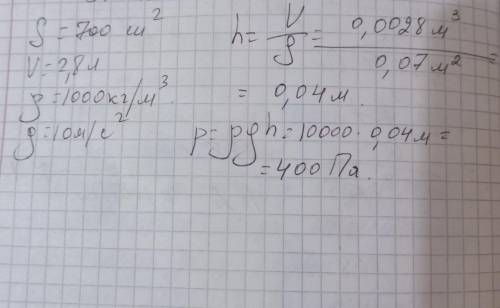 S = 700 см²
V = 2,8 л
ρ = 1000 кг/м³
g = 10 м/с²
h = V/S = 0,0028 м³ / 0,07 м² =
= 0,04 м.
p = ρgh = 10000 · 0,04 м =
= 400 Па.